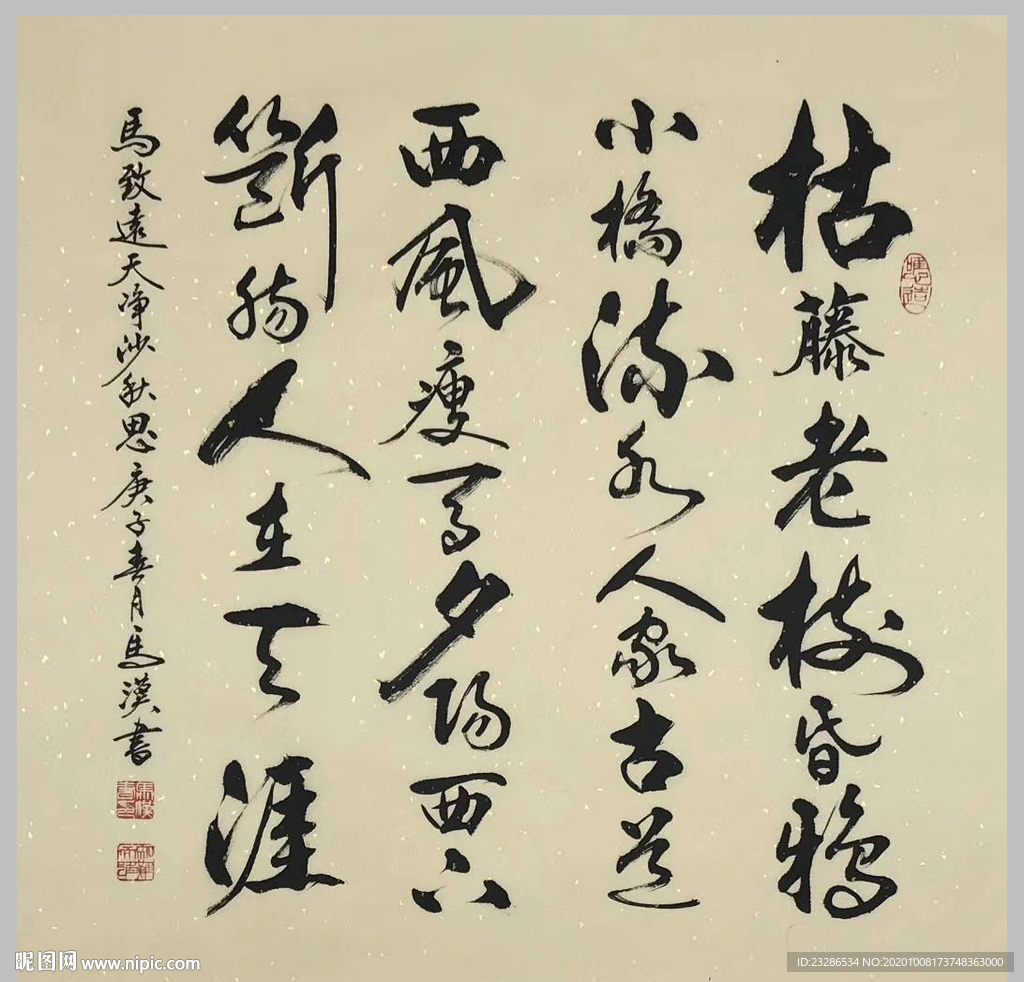 枯藤老樹昏鴉
小橋流水人家古道
西風瘦馬夕陽西下
斷腸人在天涯
馬致遠天淨沙秋思庚子春月馬漢書
昵图网 www.nipic.com
ID:23286534 NO:20201008173748363000